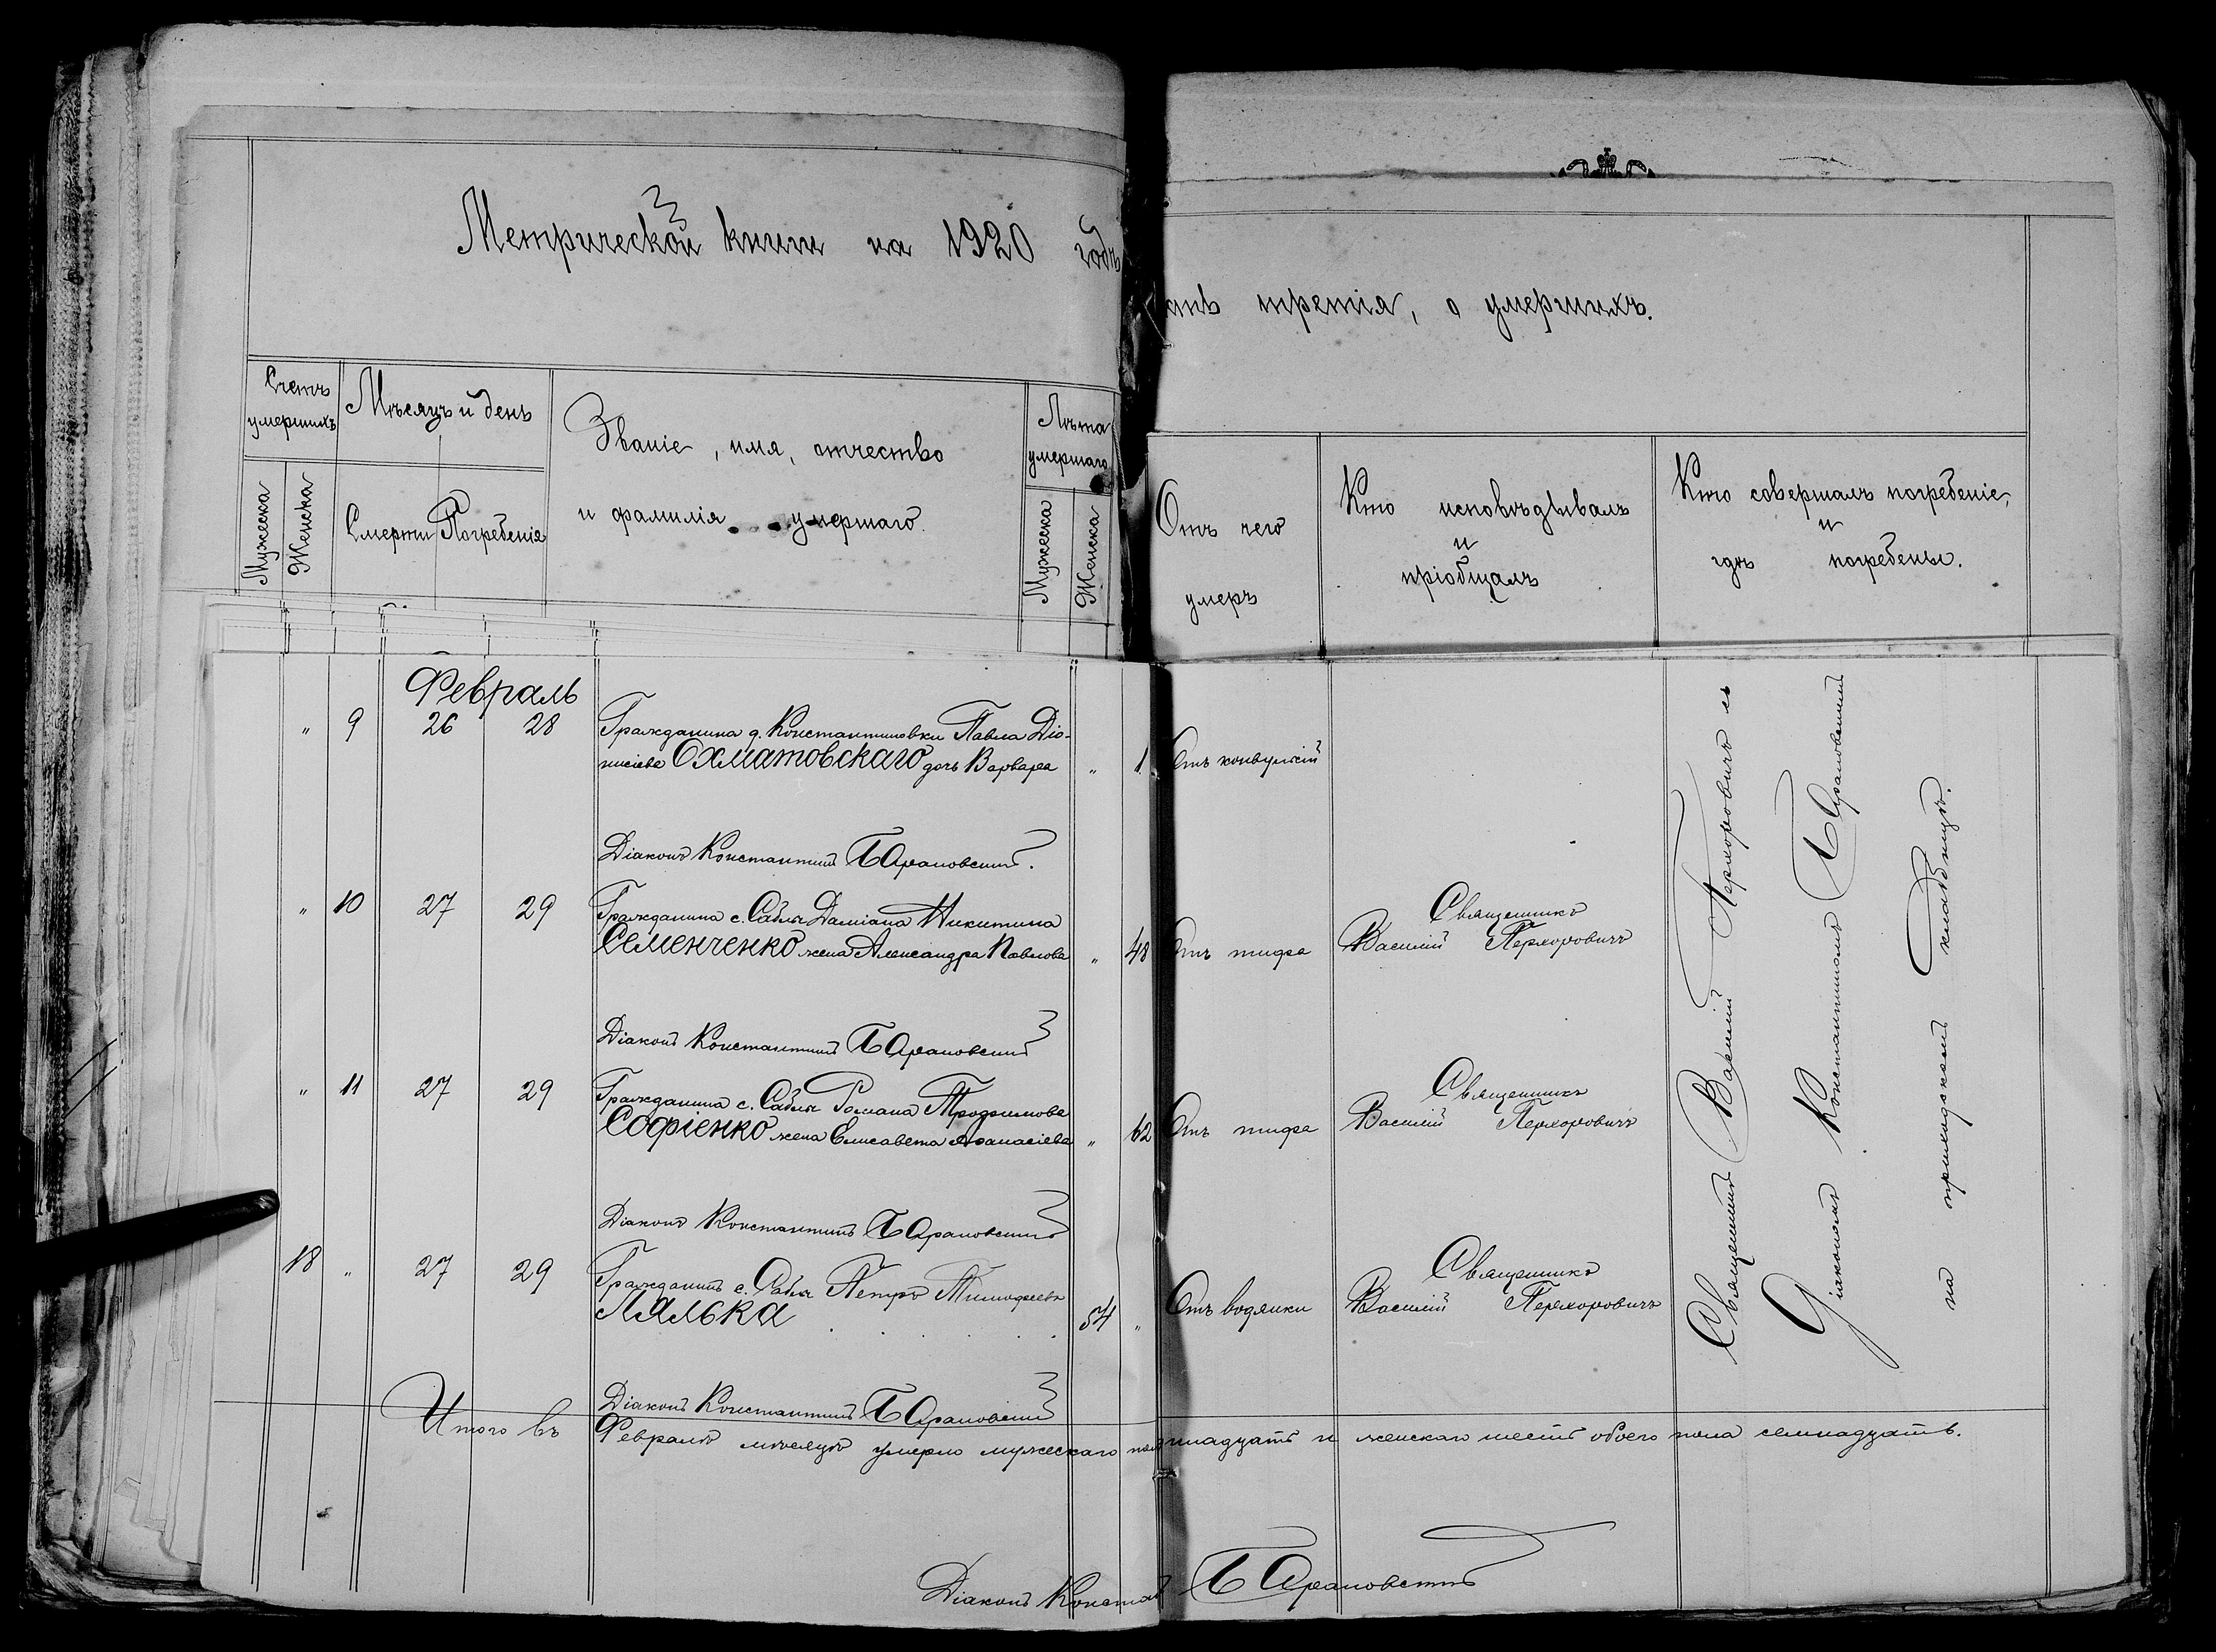 Метрической книги на 1920 годъ
часть третія, о умершихъ.
Счетъ умершихъ
Мужеска
Женска
Мѣсяцъ и день
Смерти
Погребенія
Званіе, имя, отчество
и фамилія умершаго.
Лѣта умершаго
Мужеска
Женска
Отъ чего
умеръ
Кто исповѣдывалъ
и
пріобщалъ
Кто совершалъ погребеніе,
и
гдѣ погребены.
Февраль
" 9 26 28 Гражданина д. Константиновки Павла Діо-
нисіева Охматовскаго дочь Варвара " 1 Отъ конвульсій
Діаконъ Константинъ Барановскій.
" 10 27 29 Гражданина с. Саблы Даміана Никитина
Семенченко жена Александра Павлова " 48 Отъ тифа
Священникъ
Василій Перхоровичъ
Діаконъ Константинъ Барановскій
" 11 27 29 Гражданина с. Саблы Романа Трофимова
Софіенко жена Елисавета Афанасіева " 62 Отъ тифа
Священникъ
Василій Перхоровичъ
Діаконъ Константинъ Барановскій
18 " 27 29 Гражданинъ с. Саблы Петръ Тимофеевъ
Лялька 54 " Отъ водянки
Священникъ
Василій Перхоровичъ
Діаконъ Константинъ Барановскій
Священникъ Василій Перхоровичъ съ
Діакономъ Константиномъ Барановскимъ
на приходскомъ кладбищѣ.
Итого въ Февралѣ мѣсяцѣ умерло мужескаго и женскаго шесть обоего пола семнадцать.
Діаконъ Констан Барановскій